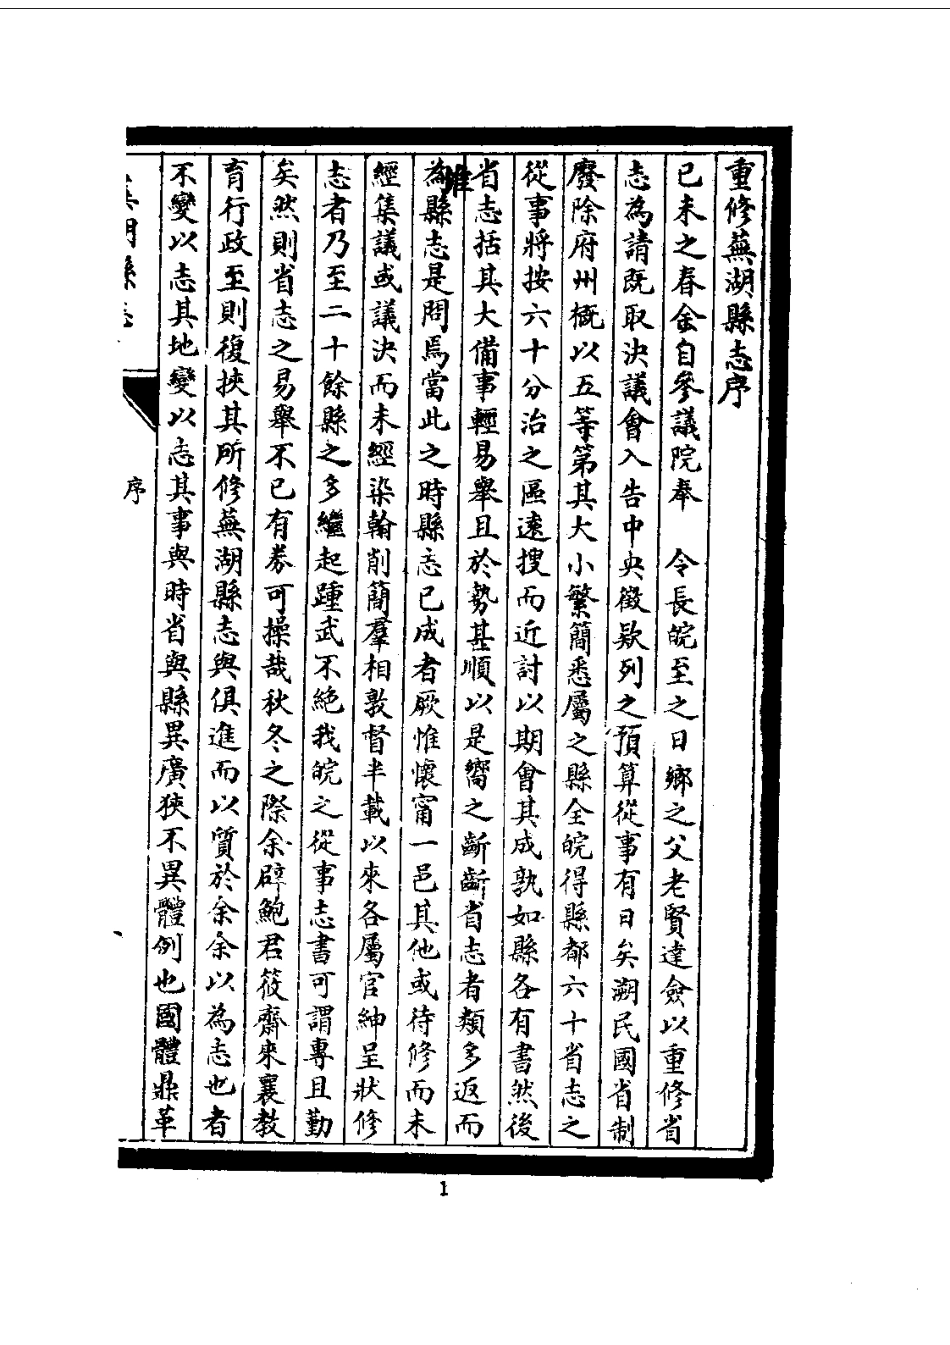 重修蕪湖縣志序
己未之春余自參議院奉　令長皖至之日鄉之父老賢達僉以重修省
志為請既取決議會入告中央徵款列之預算從事有日矣溯民國省制
廢除府州概以五等第其大小繁簡悉屬之縣全皖得縣都六十省志之
從事將按六十分治之區遠搜而近討以期會其成孰如縣各有書然後
省志括其大備事輕易舉且於勢甚順以是嚮之齗齗省志者類多返而
為縣志是問焉當此之時縣志已成者厥惟懷甯一邑其他或待修而未
經集議或議決而未經染翰削簡羣相敦督半載以來各屬官紳呈狀修
志者乃至二十餘縣之多繼起踵武不絕我皖之從事志書可謂專且勤
矣然則省志之易舉不已有券可操哉秋冬之際余辟鮑君筱齋來襄教
育行政至則復挾其所修蕪湖縣志與俱進而以質於余余以為志也者
不變以志其地變以志其事與時省與縣異廣狹不異體例也國體鼎革
湖縣志
序
1